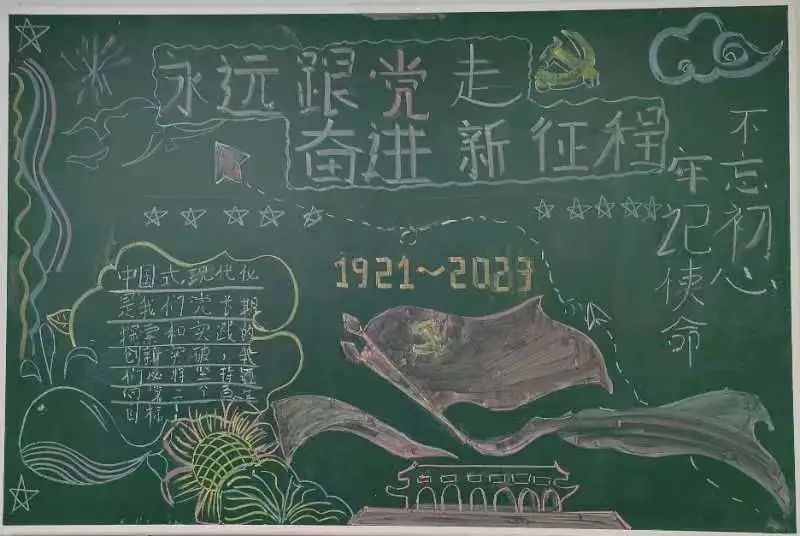 永远跟党走
奋进新征程
不忘初心
牢记使命
1921～2023
中国式现代化
是我们党长期
探索和实践的
创新突破，我
们必将坚
向第个百
目标！